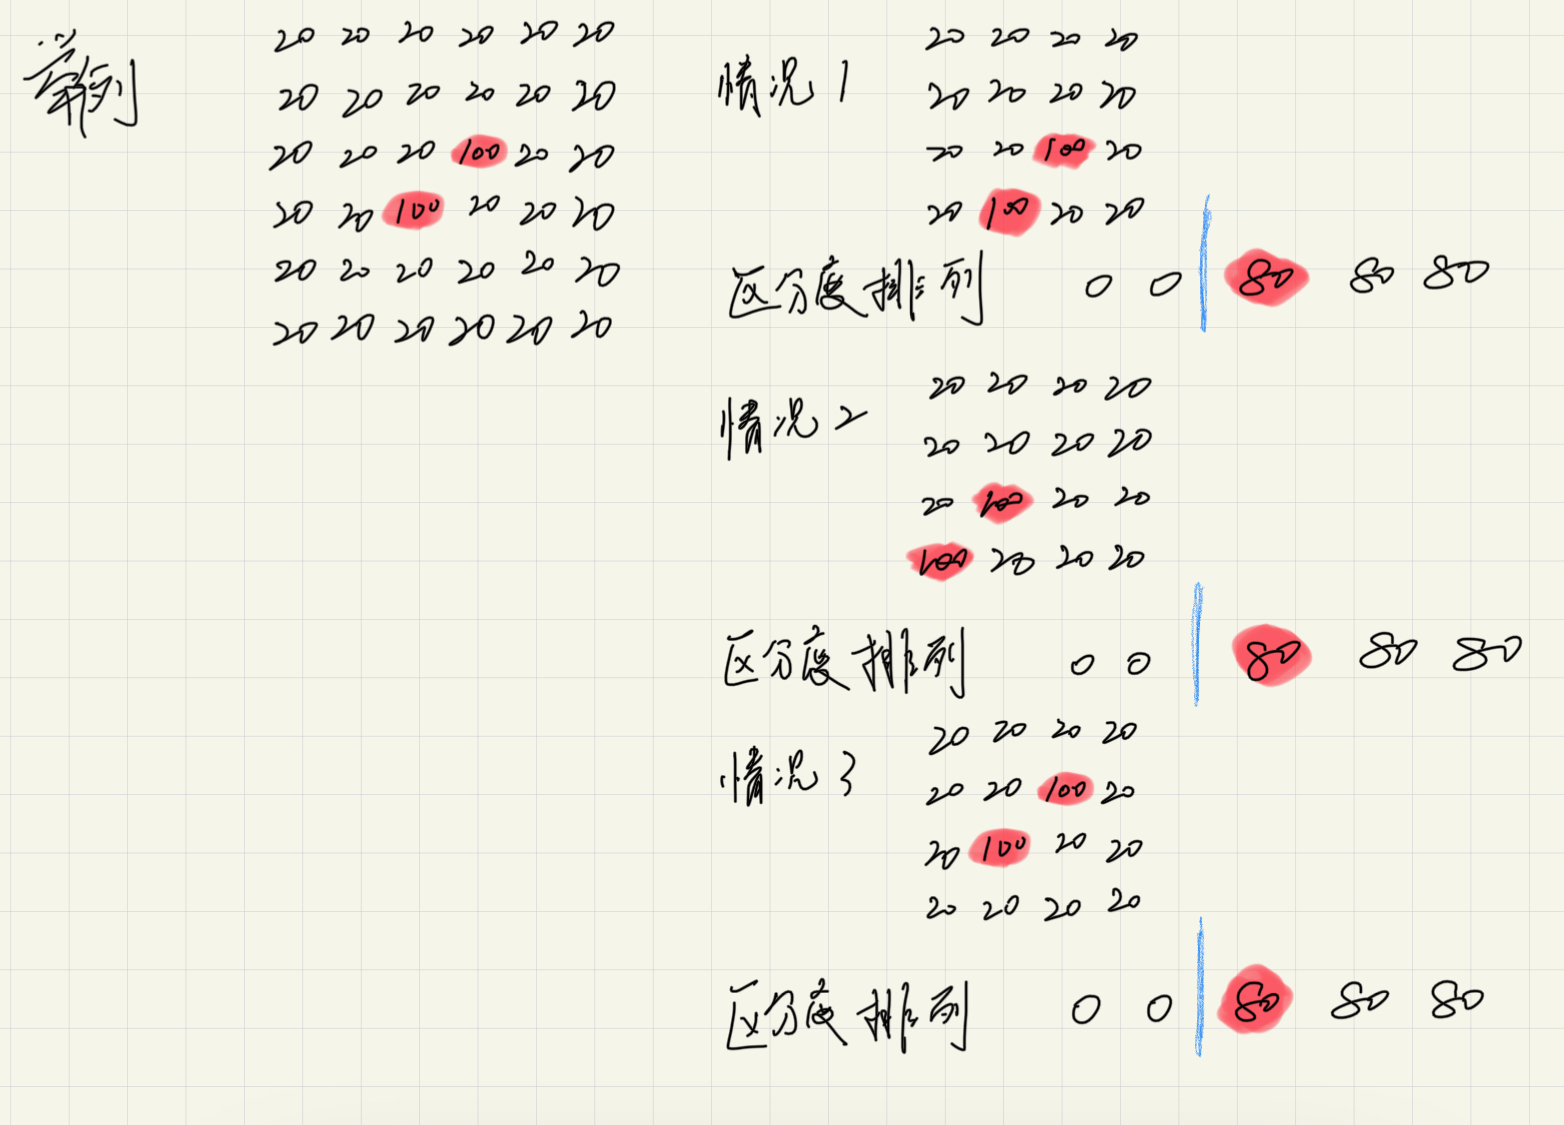 举列
20 20 20 20 20 20
20 20 20 20 20 20
20 20 20 100 20 20
20 20 100 20 20 20
20 20 20 20 20 20
20 20 20 20 20 20
情况1
20 20 20 20
20 20 20 20
20 20 100 20
20 100 20 20
区分度排列 0 0 80 80 80
情况2
20 20 20 20
20 20 20 20
20 100 20 20
100 20 20 20
区分度排列 0 0 80 80 80
情况3
20 20 20 20
20 20 100 20
20 100 20 20
20 20 20 20
区分度排列 0 0 80 80 80